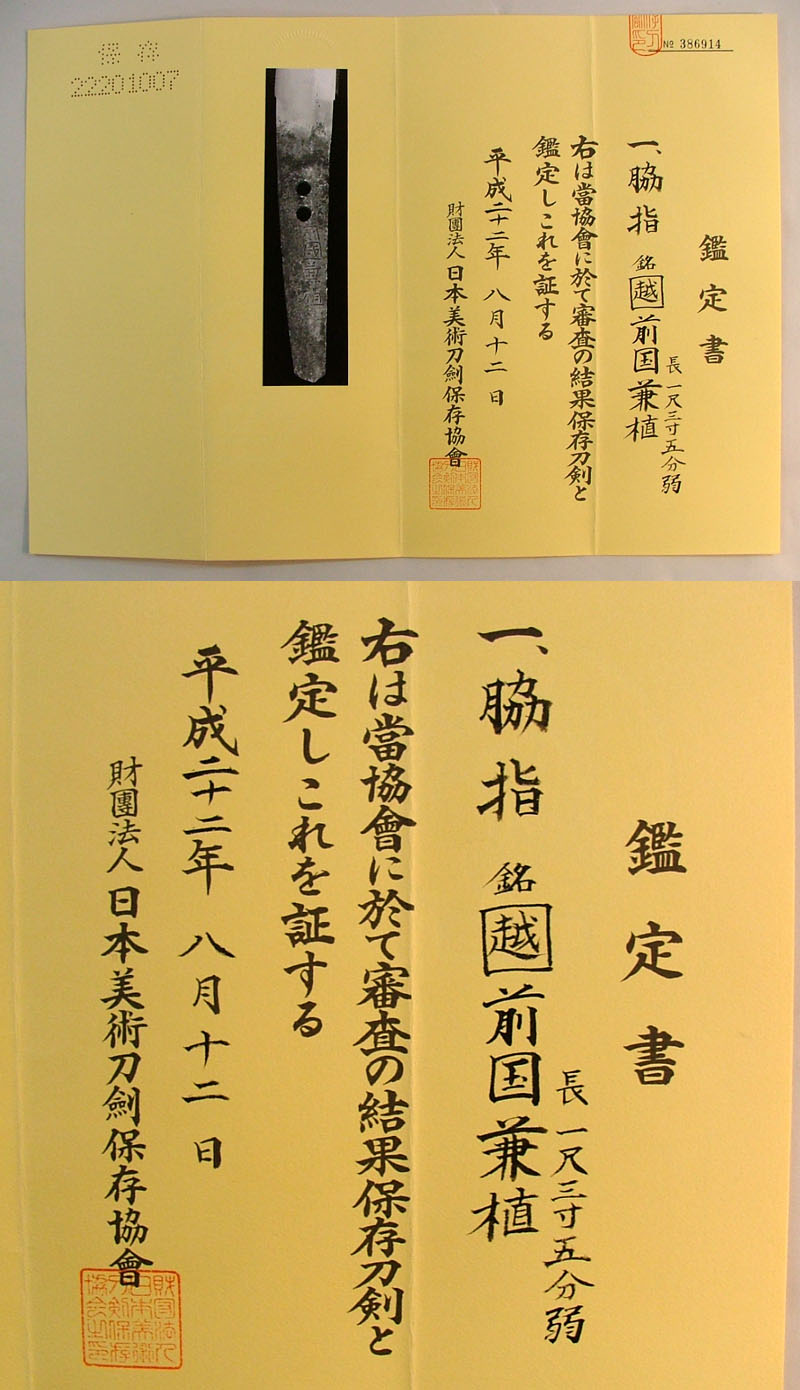 № 386914
鑑定書
一、脇指 銘 越前国兼植
長一尺三寸五分弱
右は當協會に於て審査の結果保存刀剣と
鑑定しこれを証する
平成二十二年 八月十二日
財團法人日本美術刀劍保存協會
保存
22201007
鑑定書
一、脇指 銘 越前国兼植
長一尺三寸五分弱
右は當協會に於て審査の結果保存刀剣と
鑑定しこれを証する
平成二十二年 八月十二日
財團法人日本美術刀劍保存協會